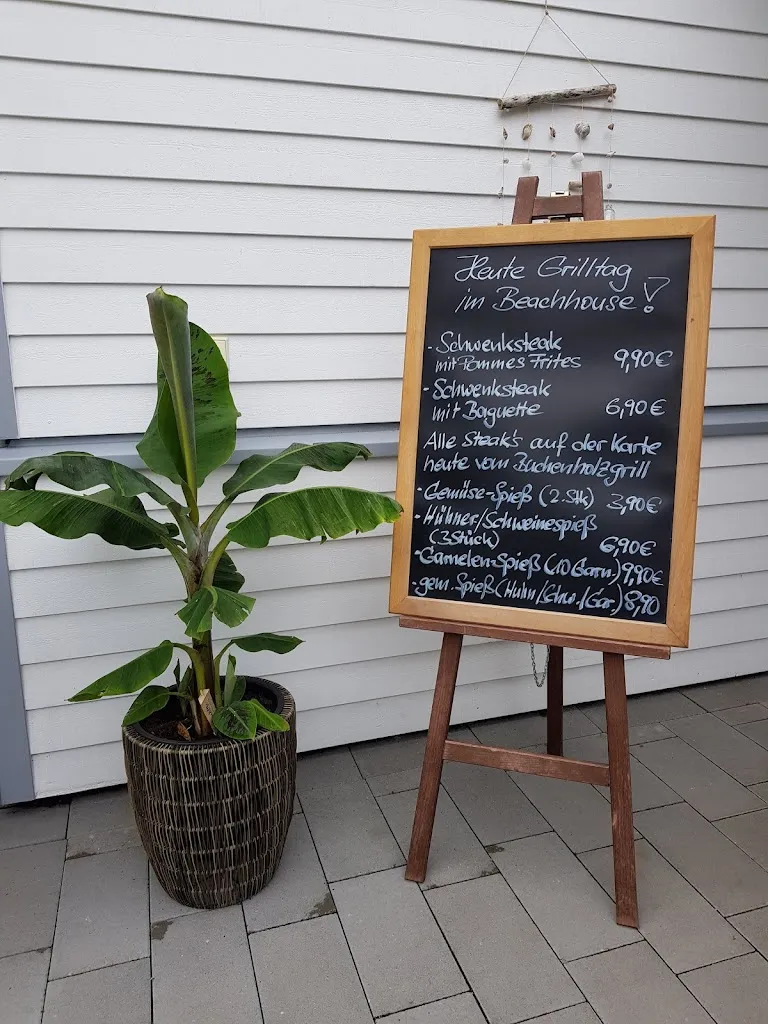 Heute Grilltag
im Beachhouse!
- Schwenksteak
mit Pommes Frites 9,90€
- Schwenksteak
mit Baguette 6,90€
Alle Steak's auf der Karte
heute vom Buchenholzgrill
- Gemüse-Spieß (2.Stk) 3,90€
- Hühner/Schweinespieß
(3Stück) 6,90€
- Garnelen-Spieß (10 Garn.) 9,90€
- gem. Spieß (Huhn/Schw./Gar.) 8,90